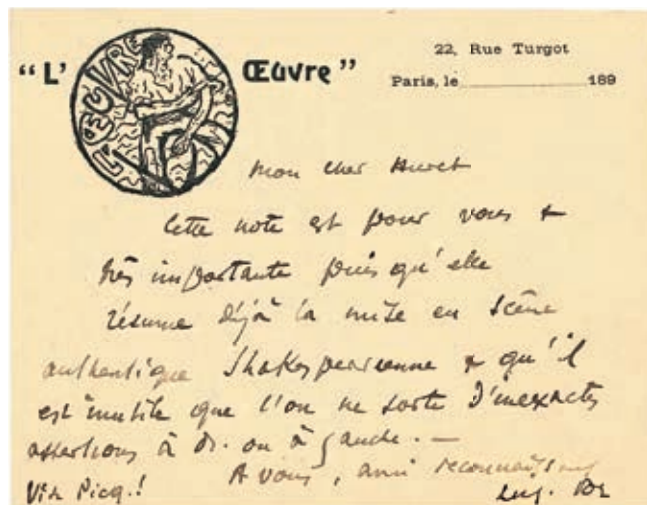 "L'Œuvre"
L'ŒUVRE
22, Rue Turgot
Paris, le 189
Mon cher Huret
Cette note est pour vous &
très importante puisqu'elle
résume déjà la mise en scène
authentique Shakespearienne & qu'il
est inutile que l'on ne sorte d'inexactes
assertions à dr. ou à gauche. —
A vous, ami reconnaissant
Picq.!